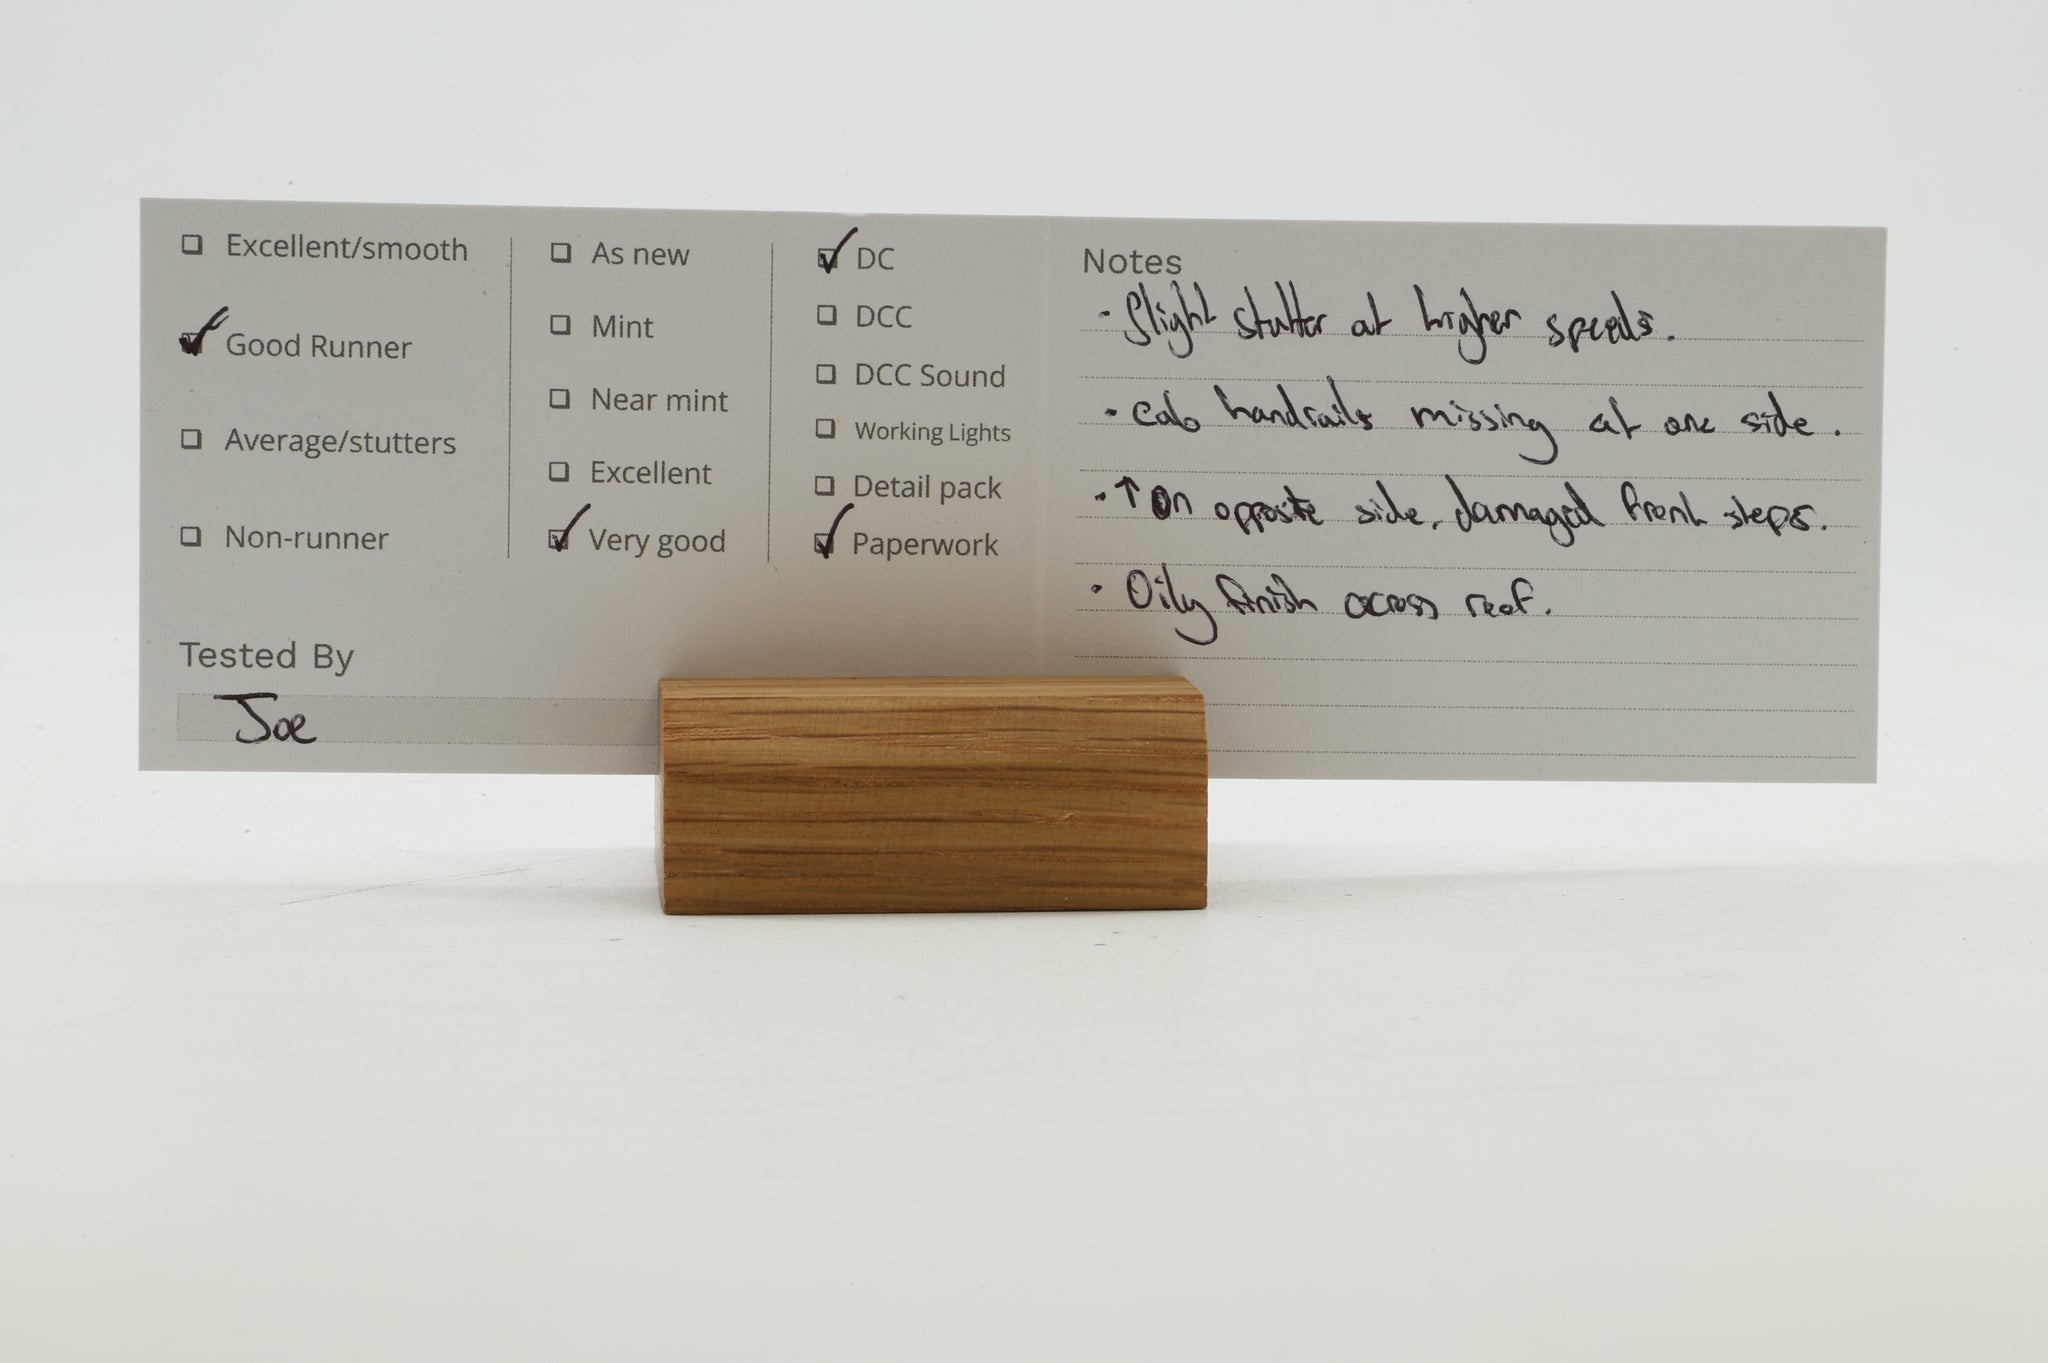 ☐ Excellent/smooth
☑ Good Runner
☐ Average/stutters
☐ Non-runner
☐ As new
☐ Mint
☐ Near mint
☐ Excellent
☑ Very good
☑ DC
☐ DCC
☐ DCC Sound
☐ Working Lights
☐ Detail pack
☑ Paperwork
Tested By
Joe
Notes
· Slight stutter at higher speeds.
· Cab handrails missing at one side.
· ↑ On opposite side, damaged front steps.
· Oily finish across roof.